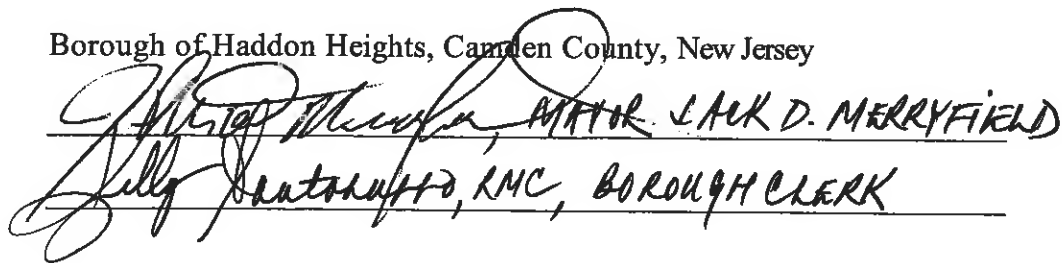 Borough of Haddon Heights, Camden County, New Jersey
, MAYOR JACK D. MERRYFIELD
Kelly Santosusso, RMC, BOROUGH CLERK